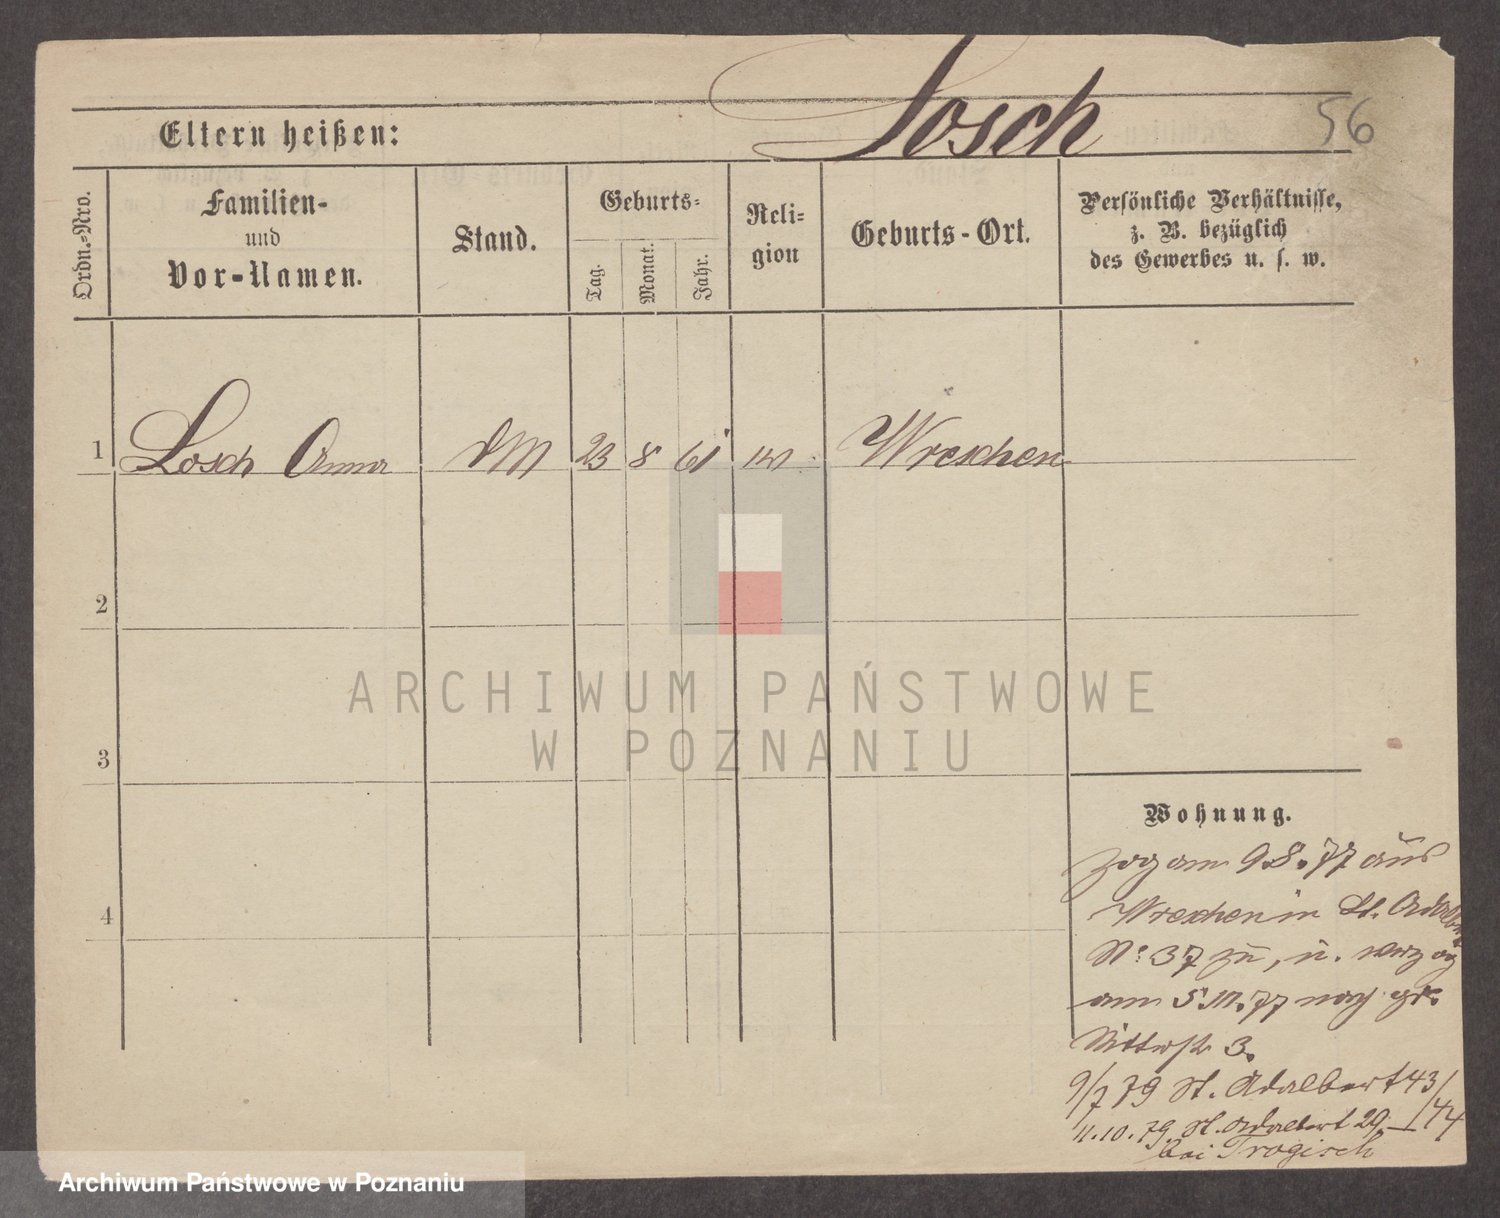 Losch
56
Eltern heißen:
Ordn.-Nro.
Familien-
und
Vor-Namen.
Stand.
Geburts-
Tag.
Monat.
Jahr.
Reli-
gion
Geburts-Ort.
Persönliche Verhältnisse,
z. B. bezüglich
des Gewerbes u. s. w.
1 Losch Anna DM 23 8 61 Wreschen
2
3
4
ARCHIWUM PAŃSTWOWE
W POZNANIU
Wohnung.
zog am 9.8.77 aus
Wreschen in St. Adalbert
No 37 zu, u. verzog
am 5. 77 nach gr.
Ritterstr 3.
9/7 79 St. Adalbert 43/44
11.10.79. St. Adalbert 29
bei Trogisch
Archiwum Państwowe w Poznaniu